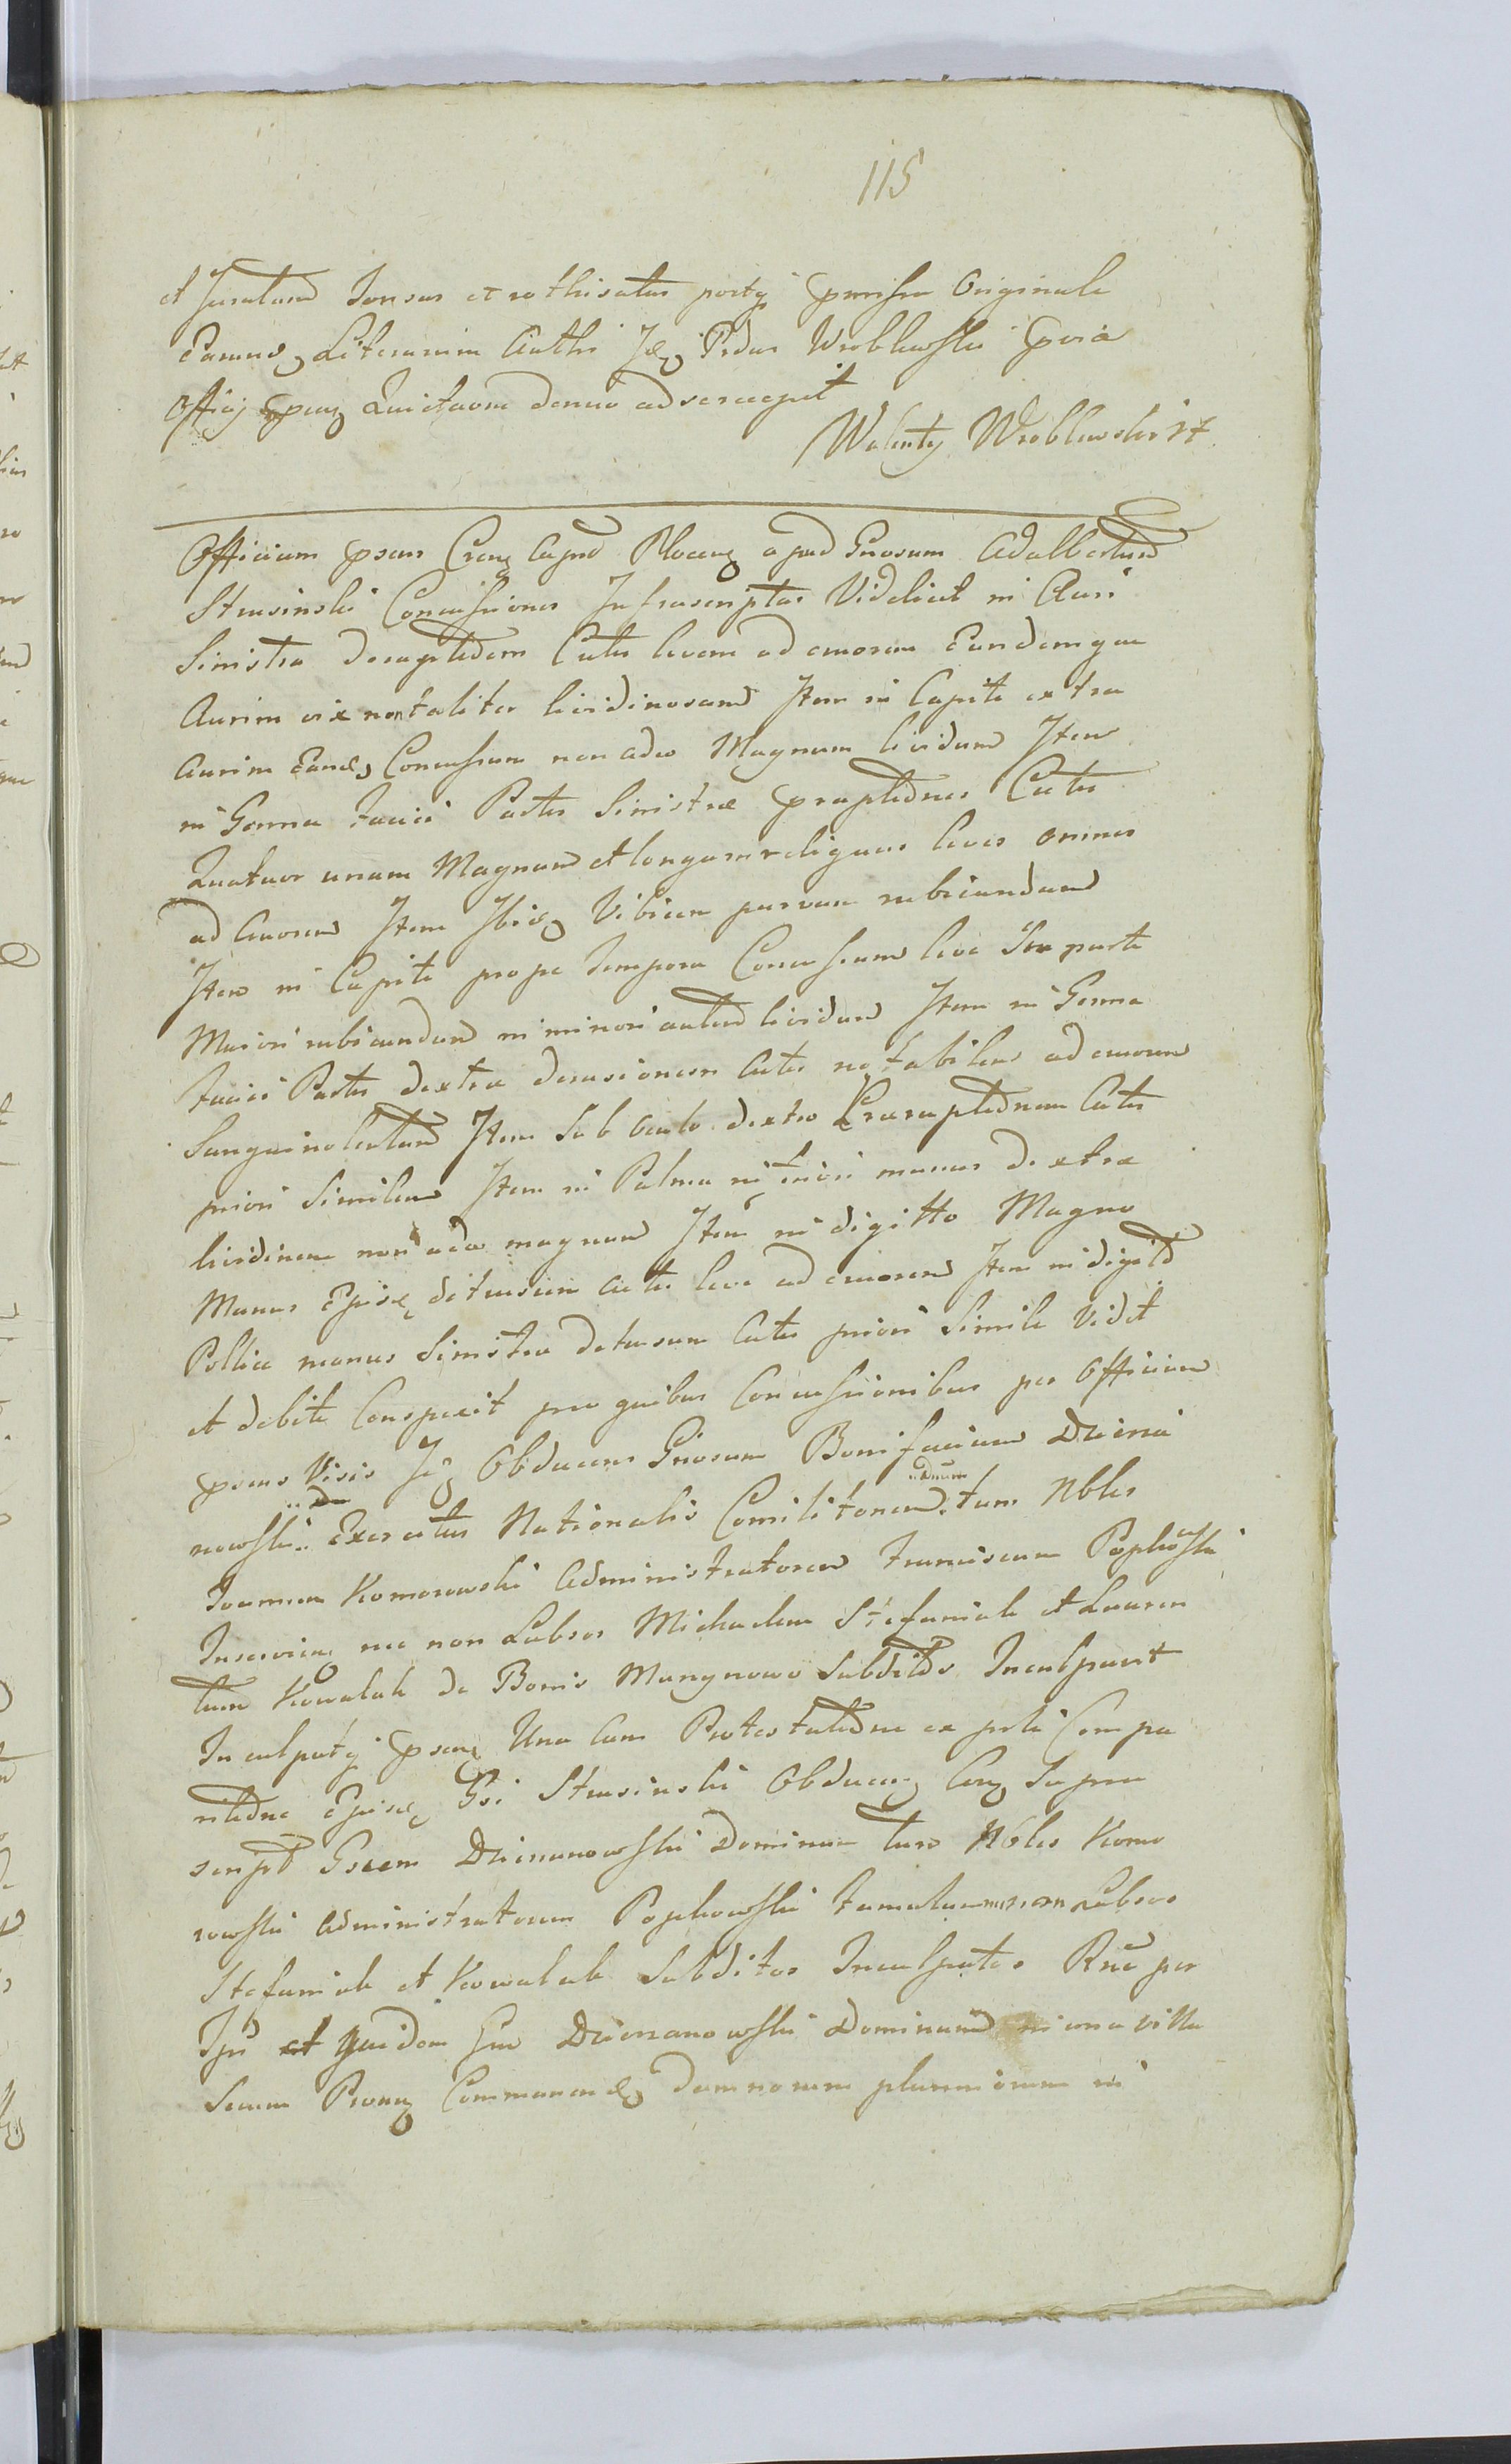 115
et Juratum Jonsas et rothisatus postq prmissa Originale
Eamnd Literarum Authi Idq Prdus Wroblewski
Officij Quietaone denuo ad se recepit
Walenty Wroblewski
Officium psens Crens Capnd Plocens apud Gnosum Adalbertum
Strusinski Concussiones Infrascriptas Videlicet in Auri
Sinistra deraptidem Cutis levem ad cruorem Eandemque
Aurim vix non taliter lividinosam Item in Capite extra
Aurim Eand Concussum non adeo Magnum lividum Item
in Genna faciei Partis Sinistrae praptidnes Cutis
Quatuor unam Magnam et longam reliquas leves omnes
ad cruorem Item Ibid Vibicem parvam rubicundam
Item in Capite prope tempora Concussum leve Sua parte
Maiori rubicundum in minori autem lividum Item in Genna
faciei Partis dextrae derasionem Cutis notabilem ad cruorem
Sanguinolentam Item Sub oculo dextro Cutis
priori Similem Item in Palma manus dextrae
lividinem non adeo magnam Item in digitto Magno
Manus Ejusd detrusum Cutis leve ad cruorem Item in digito
Pollice manus Sinistra detrusum Cutis priori Simile Vidit
et debite Conspexit pro quibus Concussionibus per Officium
psens Visis Idq Obducens Gnosum Bonifacium Dziera
nowski Exercitus Nationalis Comilitonem dnum tum Nbles
Joannem Komorowski Administratorem Franciscum Popkowski
Inservien nec non Labsos Michaelem Stefaniak et Lauren
tium Kowalak de Bonis Manynowo Subditos Inculpavit
Inculpatq psens Una Cum Protestatidne ex psti Compa
ritidne Ejusd Gsi Strusinski Obducen Supra
script Gsem Dzieranowski Dominum tum Nbles Komo
rowski Administratorem Popkowski famulum nec non Labsos
Stefaniak et Kowalak Subditos Inculpatos Rne per
Ips et quidem Gm Dzieranowski Dominum in una villa
Secum Commanend damnorum plurimorum in